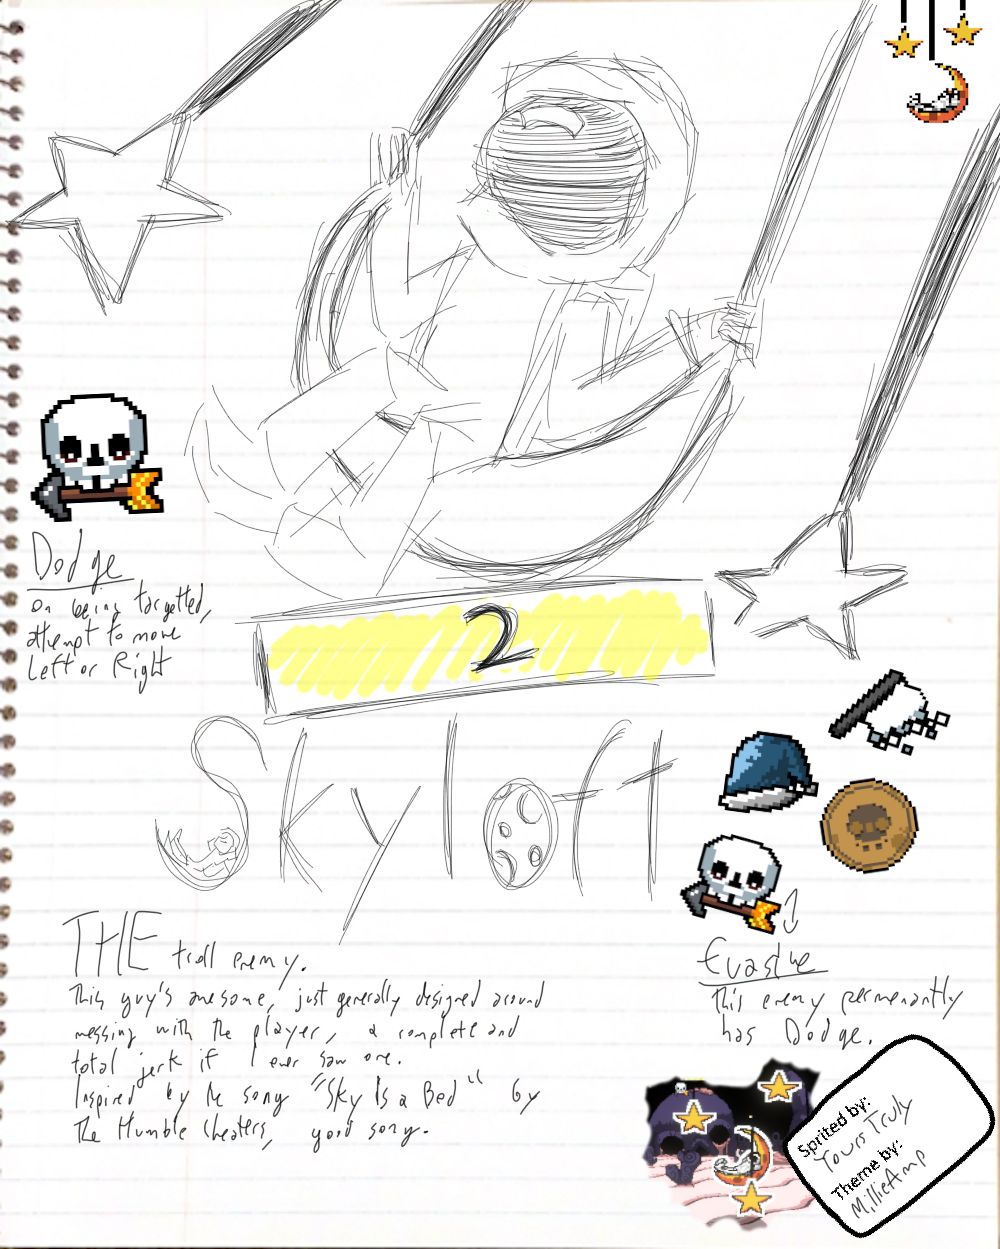 Dodge
On being targetted,
attempt to move
Left or Right
2
Skyloft
THE troll enemy.
This guy's awesome, just generally designed around
messing with the player, a complete and
total jerk if I ever saw one.
Inspired by the song "Sky Is a Bed" by
The Humble Cheaters, good song.
Evasive
This enemy permenantly
has Dodge.
Sprited by:
Yours Truly
Theme by:
MillieAmp